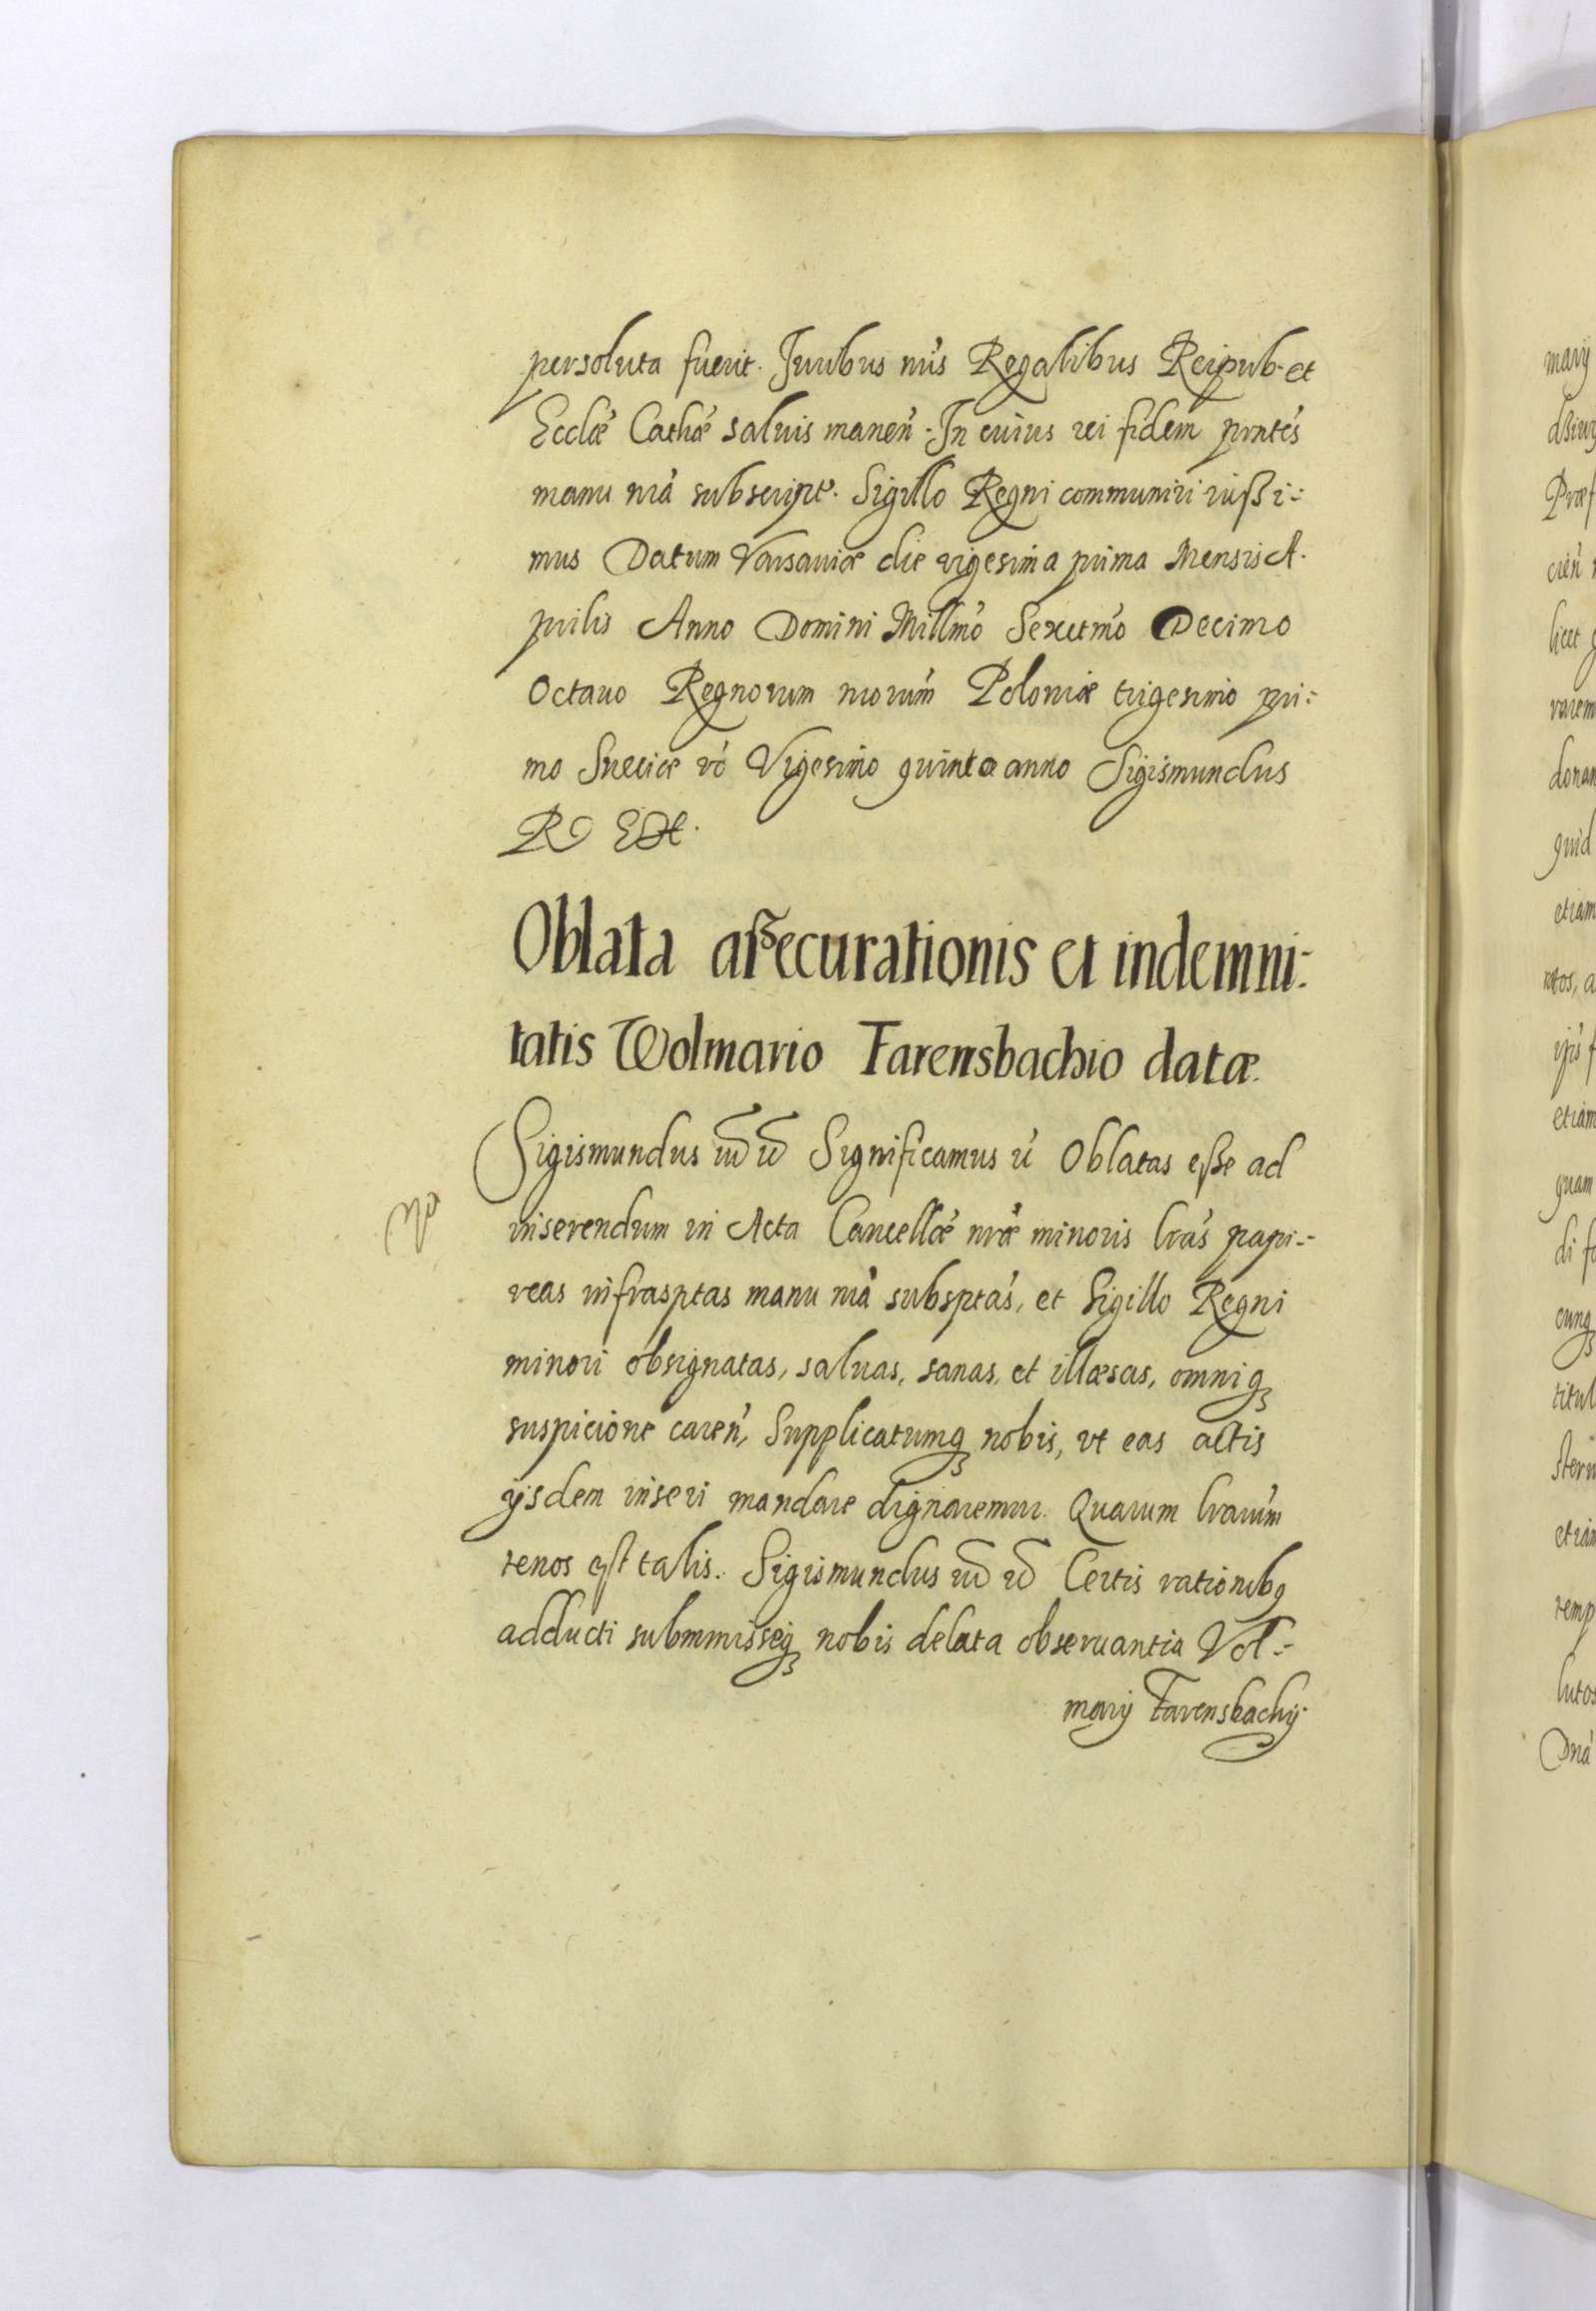 persoluta fuerit. Juribus nris Regalibus Reipub. et
Ecclæ Cathæ saluis manen̄. In cuius rei fidem pntes
manu nrā subscript. Sigillo Regni communiri iußi-
mus Datum Varsauiæ die vigesima prima Mensis A-
prilis Anno Domini Millmo Sexcetmo Decimo
Octauo Regnorum nrorum Poloniæ trigesimo pri-
mo Sueciæ vo Vigesimo quinto anno Sigismundus
R
Oblata aßecurationis et indemni-
tatis Wolmario Farensbachio datæ.
Sigismundus Significamus Oblatas eße ad
inserendum in Acta Cancellæ nræ minoris lras papi-
reas infrasptas manu nrā subsptas, et Sigillo Regni
minori obsignatas, saluas, sanas, et illæsas, omniq
suspicione caren̄, Supplicatumq nobis, vt eas actis
ijsdem inseri mandare dignaremur. Quarum lrarum
tenor est talis. Sigismundus Certis rationibq
adducti submmisseq nobis delata obseruantia Vol-
marij Farensbachij
marij
Præf
licet
donan
quid
etiam
etiam
quam
cunq
titul
temp
lutos
Dnā